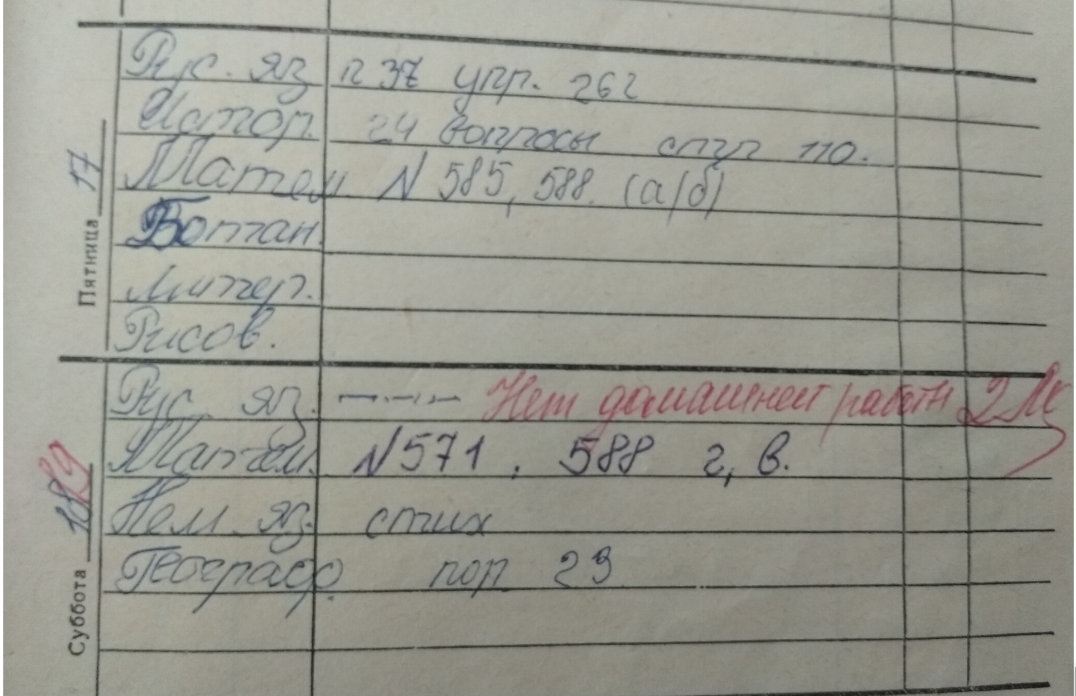 Пятница 17
Рус. яз п 37 упр. 262
Истор. 24 вопросы стр 110.
Матем N 585, 588. (а/б)
Ботан.
Литер.
Рисов.
Суббота
Рус. яз. Нет домашней работы 2
Матем. N571, 588 г, в.
Нем. яз. стих
Географ. пор 23